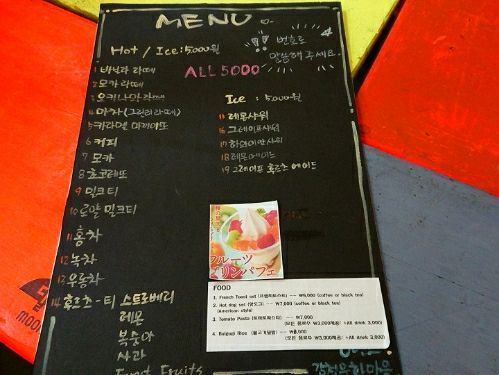 MENU
Hot / Ice : 5000원
번호로
말씀해 주세요.
ALL 5000
1 바닐라 라떼
2 모카 라떼
3 오키나와 라떼
4 마차 (그린티 라떼)
5 카라멜 마끼아또
6 커피
7 모카
8 쵸코레또
9 밀크티
10 로얄 밀크티
11 홍차
12 녹차
13 우롱차
14 후르츠-티 스트로베리
레몬
복숭아
사과
Fruits
Ice : 5000원
15 레몬사워
16 그레이프사워
17 하와이안사워
18 레몬에이드
19 그레이프 후르츠 에이드
フルーツ
プリンパフェ
FOOD
1. French Toast set (프렌치토스트) --- ₩6,000 (coffee or black tea)
2. Hot dog set (핫도그) --- ₩7,000 (coffee or black tea)
(American style)
3. Tomato Pasta (토마토파스타) --- ₩7,000
(모든 음료수 ₩3,000제공: +All drink 3,000)
4. Bulgogi Rice (불고기덮밥) --- ₩8,000
(모든 음료수 ₩3,000제공: +All drink 3,000)